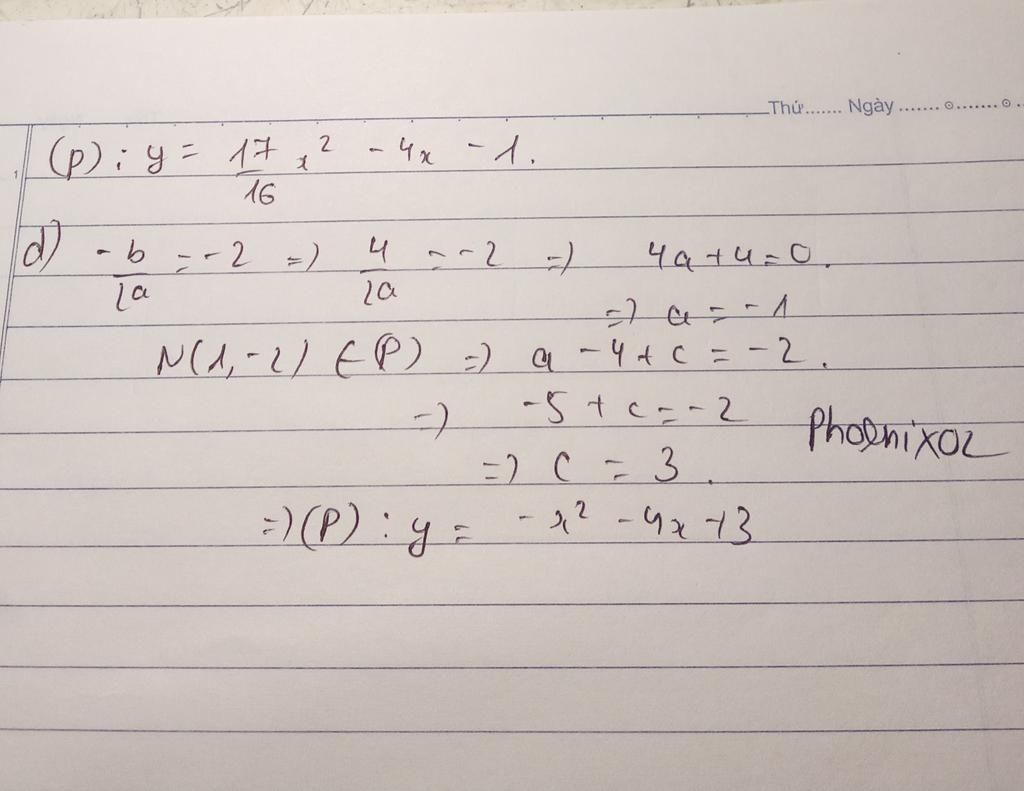 Thứ....... Ngày ....... ⊙....... ⊙ ..
(P) : y = 17/16 x² - 4x - 1.
d) -b/2a = -2 => 4/2a = -2 => 4a + 4 = 0.
=> a = -1
N(1, -2) ∈ (P) => a - 4 + c = -2.
=> -5 + c = -2
Phoenix02
=> c = 3.
=> (P) : y = -x² - 4x + 3